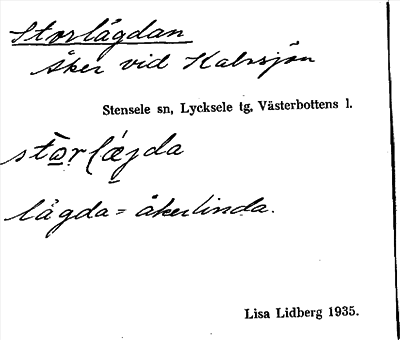 Storlågdan
åker vid Kalvsjön
Stensele sn, Lycksele tg, Västerbottens l.
lågda = åkerlinda.
Lisa Lidberg 1935.